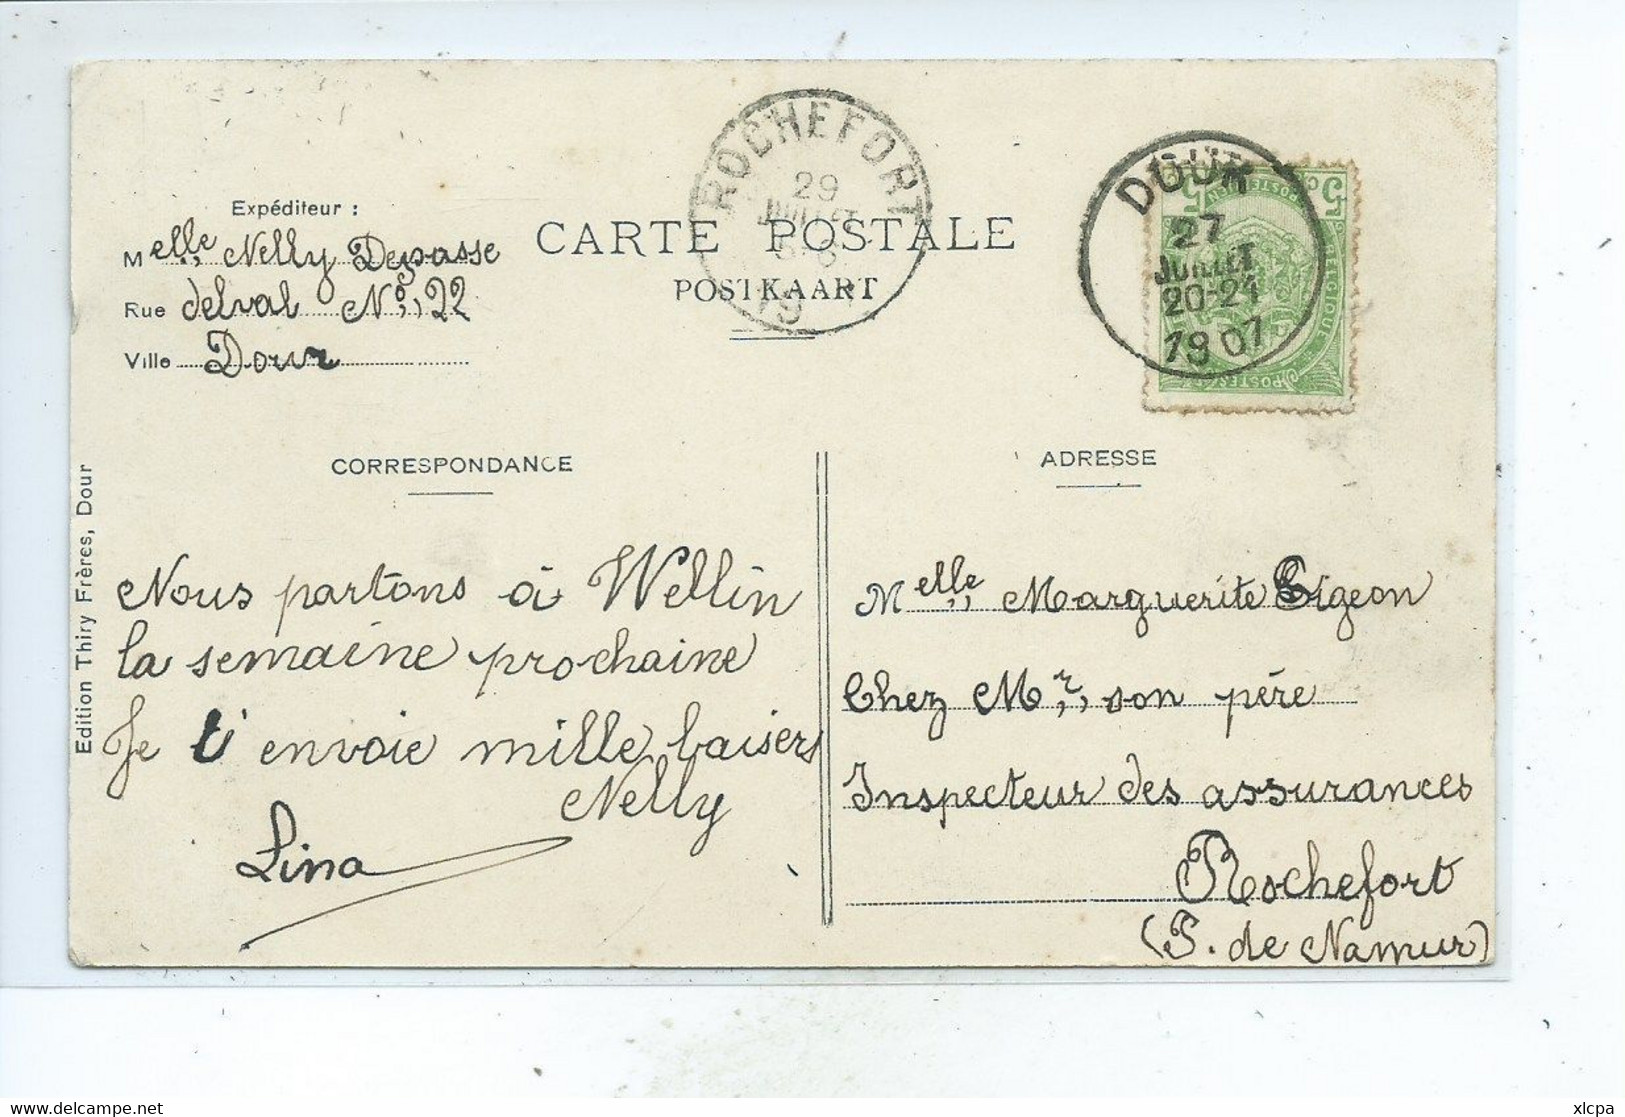 ROCHEFORT
29
JUILLET
19
DOUR
27
JUILLET
20-21
1907
Expéditeur :
Melle Nelly Depasse
Rue Delval No 22
Ville Dour
CARTE POSTALE
POSTKAART
CORRESPONDANCE
ADRESSE
Edition Thiry Frères, Dour
Nous partons à Wellin
la semaine prochaine
Je t'envoie mille baisers
Nelly
Lina
Melle Marguerite Gigeon
Chez Mr, son père
Inspecteur des assurances
Rochefort
(P. de Namur)
delcampe.net
xlcpa